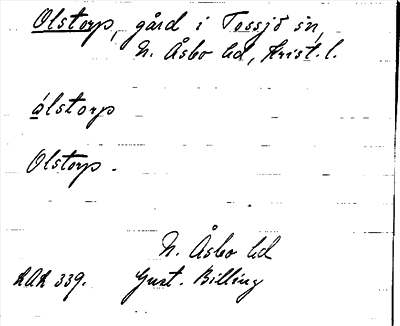 Olstorp, gård i Tossjö sn,
N. Åsbo hd, Krist. l.
álstorp
Olstorp.
N. Åsbo hd
KAK 339. Gust. Billing